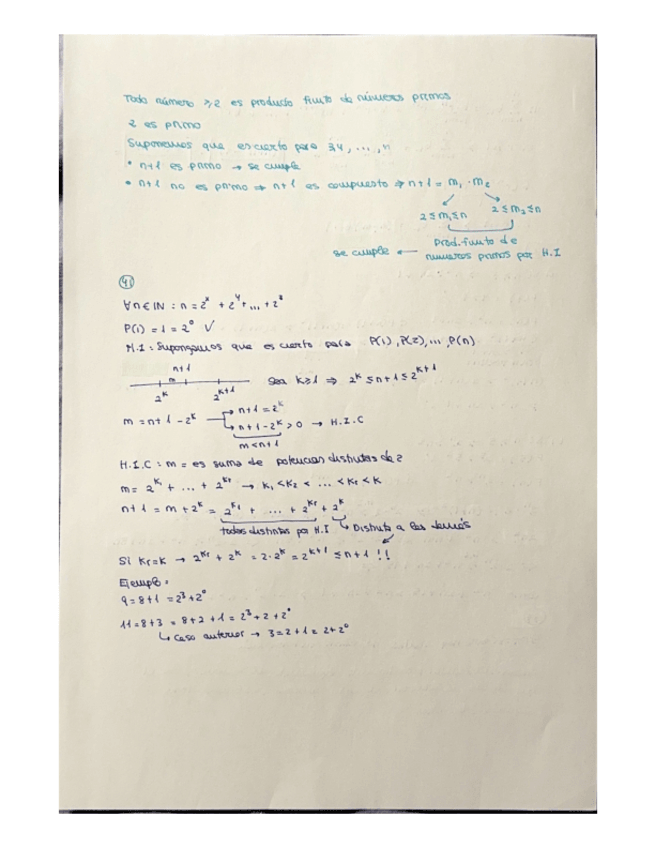 Todo número ≥2 es producto finito de números primos
2 es primo
Suponemos que es cierto para 3,4, ..., n
• n+1 es primo → se cumple
• n+1 no es primo ⇒ n+1 es compuesto ⇒ n+1 = m₁ · m₂
2 ≤ m₁ ≤ n 2 ≤ m₂ ≤ n
Prod. finito de
se cumple ← números primos por H.I
41
∀n ∈ ℕ : n = 2ˣ + 2ʸ + ... + 2ᶻ
P(1) = 1 = 2⁰ √
H.I : Supongamos que es cierto para P(1), P(2), ..., P(n)
n+1
m
2ᵏ 2ᵏ⁺¹ Sea k ≥ 1 ⇒ 2ᵏ ≤ n+1 ≤ 2ᵏ⁺¹
→ n+1 = 2ᵏ
m = n+1 - 2ᵏ
→ n+1 - 2ᵏ > 0 → H.I.C
m < n+1
H.I.C : m = es suma de potencias distintas de 2
m = 2ᵏ¹ + ... + 2ᵏʳ → k₁ < k₂ < ... < kr < k
n+1 = m + 2ᵏ = 2ᵏ¹ + ... + 2ᵏʳ + 2ᵏ
todos distintos por H.I ↳ Distinto a los demás
Si kr = k → 2ᵏʳ + 2ᵏ = 2·2ᵏ = 2ᵏ⁺¹ ≤ n+1 !!
Ejemplo:
9 = 8+1 = 2³ + 2⁰
11 = 8+3 = 8+2+1 = 2³ + 2 + 2⁰
↳ caso anterior → 3 = 2+1 = 2+2⁰